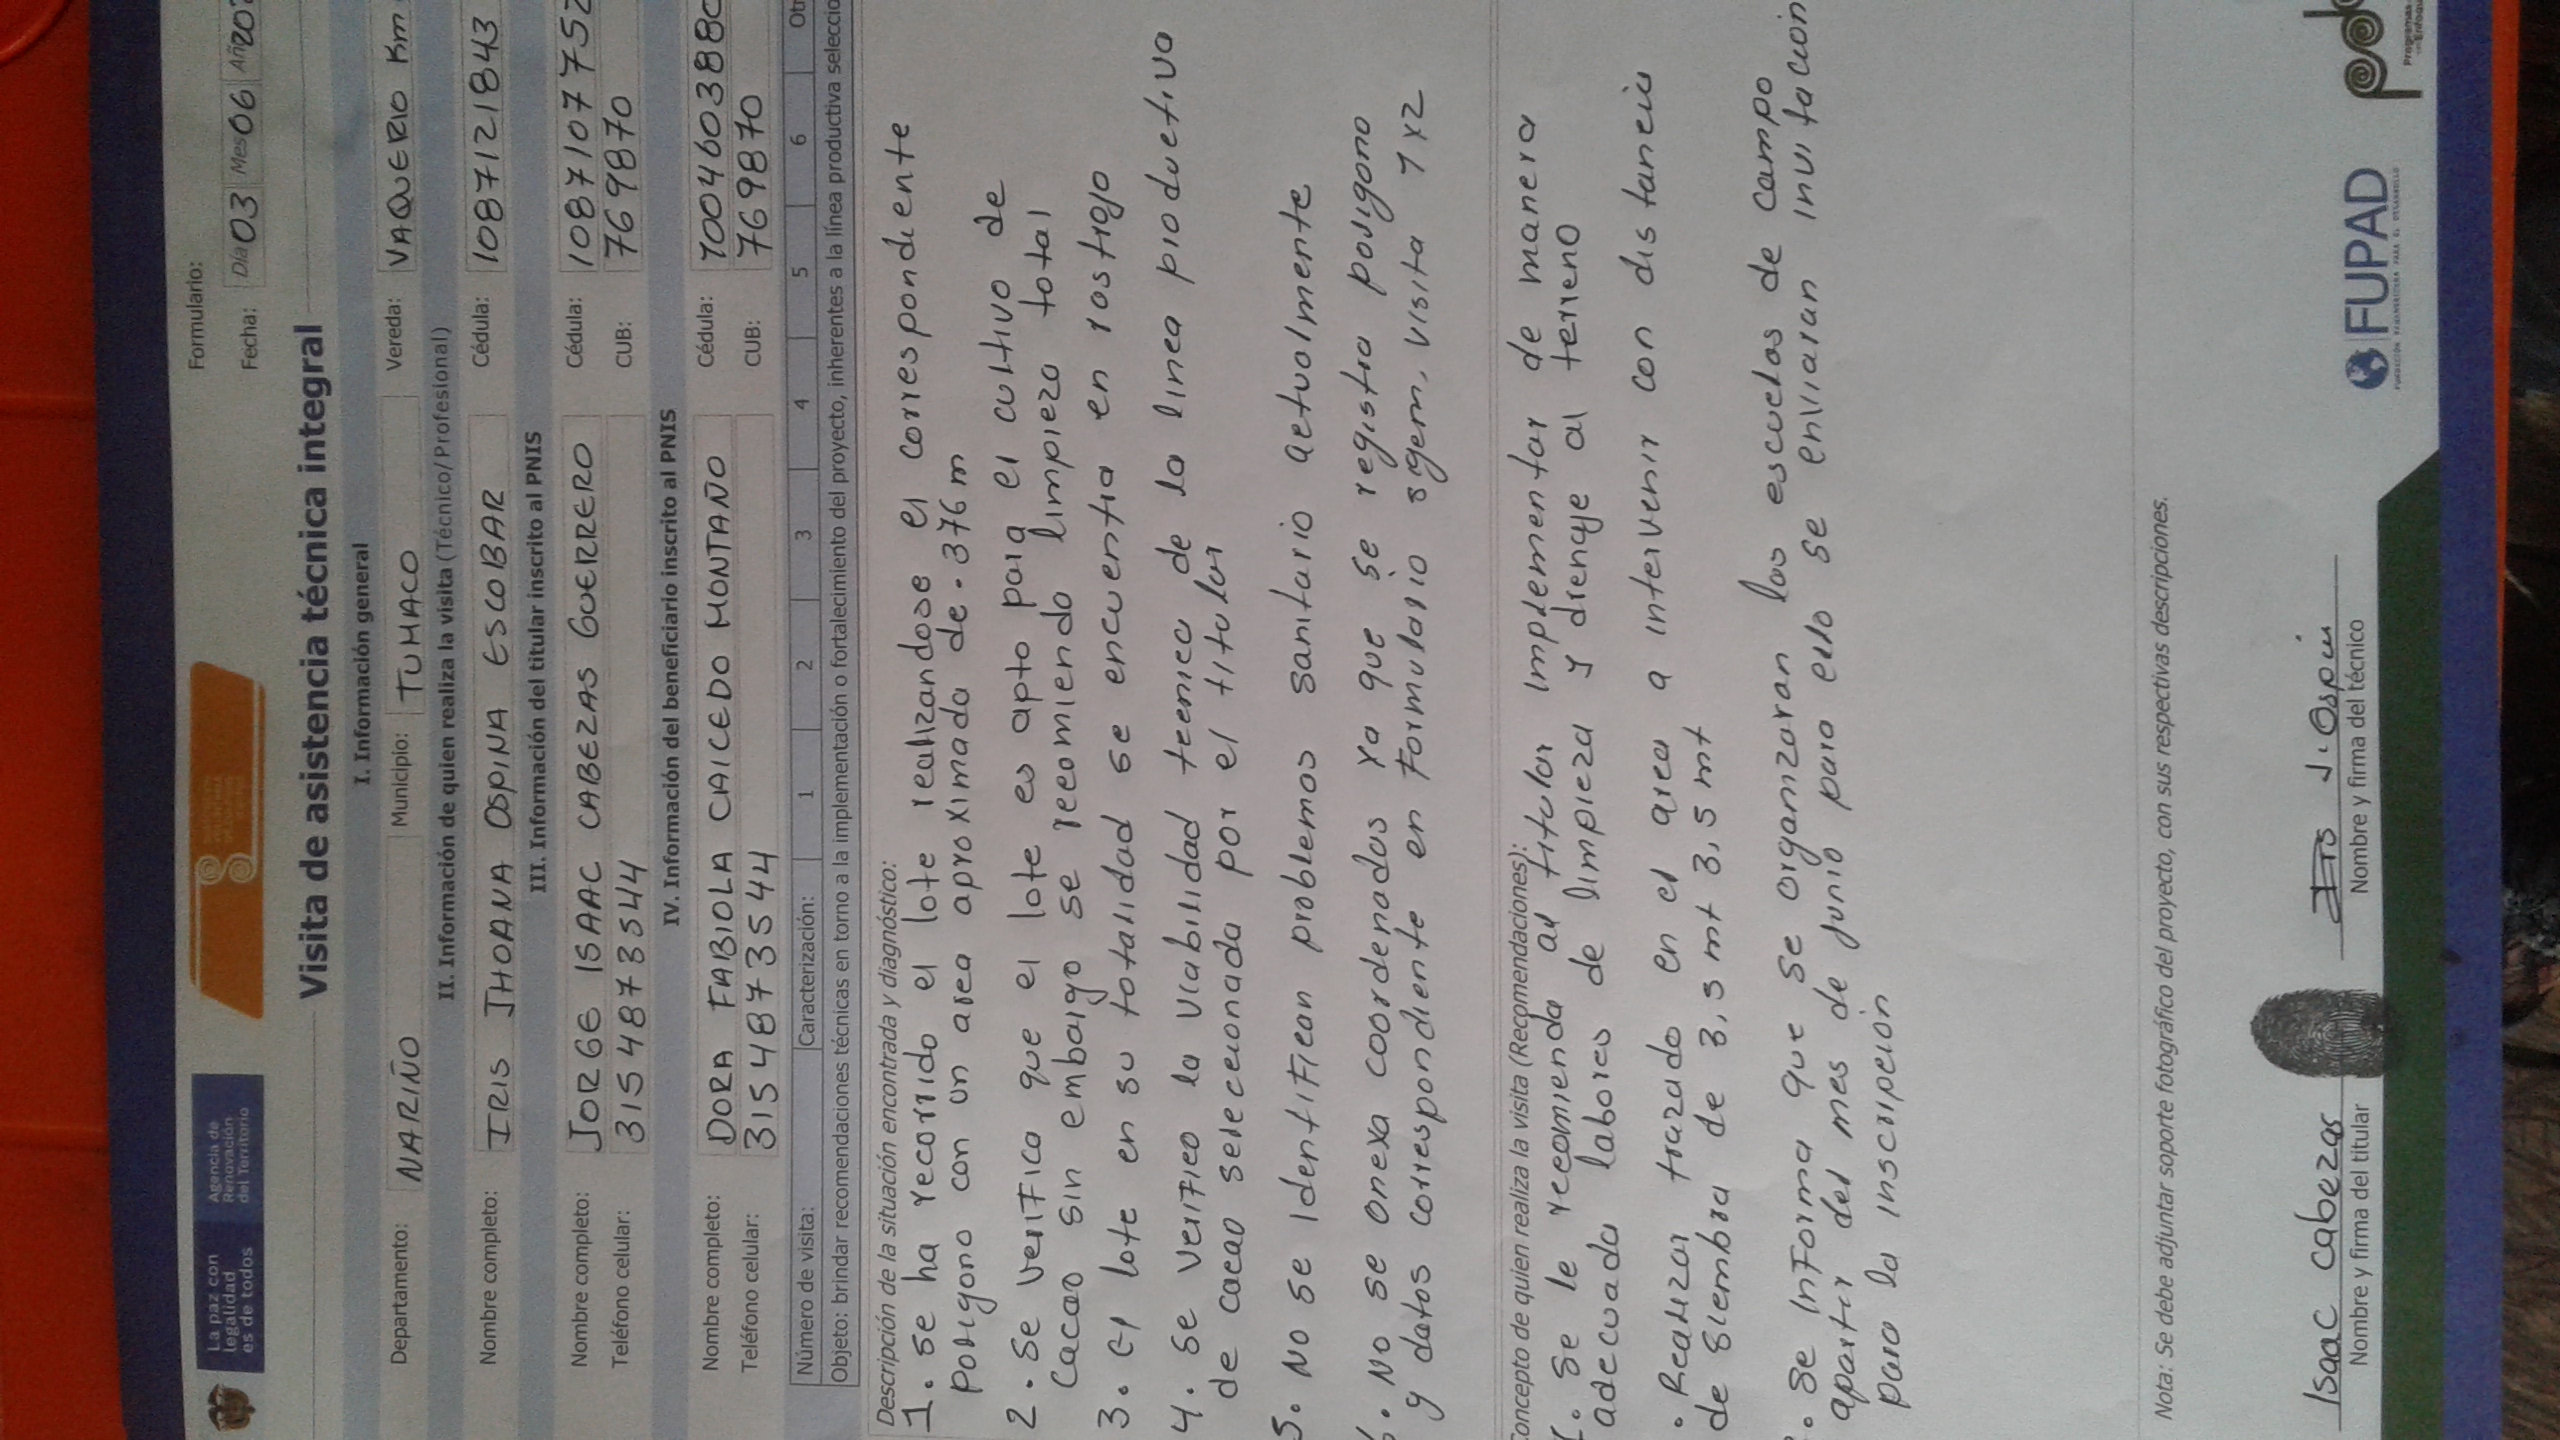 La paz con
legalidad
es de todos
Agencia de
Renovación
del Territorio
Formulario:
Fecha: Día 03 Mes 06 Año 202
Visita de asistencia técnica integral
I. Información general
Departamento: NARIÑO Municipio: TUMACO Vereda: VAQUERIO Km
II. Información de quien realiza la visita (Técnico/Profesional)
Nombre completo: IRIS JHOANA OSPINA ESCOBAR Cédula: 1087121843
III. Información del titular inscrito al PNIS
Nombre completo: JORGE ISAAC CABEZAS GUERRERO Cédula: 108710775
Teléfono celular: 3154873544 CUB: 769870
IV. Información del beneficiario inscrito al PNIS
Nombre completo: DORA FABIOLA CAICEDO MONTAÑO Cédula: 100460388
Teléfono celular: 3154873544 CUB: 769870
Número de visita: Caracterización: 1 2 3 4 5 6 Otr
Objeto: brindar recomendaciones técnicas en torno a la implementación o fortalecimiento del proyecto, inherentes a la línea productiva seleccio
Descripción de la situación encontrada y diagnóstico:
1. se ha recorrido el lote realizandose el correspondiente
poligono con un area aproximada de. 376 m
2. Se verifica que el lote es apto para el cultivo de
Cacao sin embargo se recomiendo limpieza total
3. el lote en su totalidad se encuentra en rostrojo
4. Se verifico la viabilidad tecnica de la linea productiva
de cacao seleccionada por el titular
5. No se identifican problemas sanitario actualmente
. No se anexa coordenadas ya que se registra poligono
y datos correspondiente en Formulario sygem, visita 1x2
Concepto de quien realiza la visita (Recomendaciones):
. Se le recomienda al titular implementar de manera
adecuada labores de limpieza y drenaje al terreno
. Realizar trazado en el area a intervenir con distancia
de siembra de 3,5 mt 3,5 mt
. Se informa que se organizaran las escuelas de campo
apartir del mes de junio para ello se enviaran invitacion
para la inscripcion
Nota: Se debe adjuntar soporte fotográfico del proyecto, con sus respectivas descripciones.
Isaac cabezas
Nombre y firma del titular
J. Ospin
Nombre y firma del técnico
FUPAD